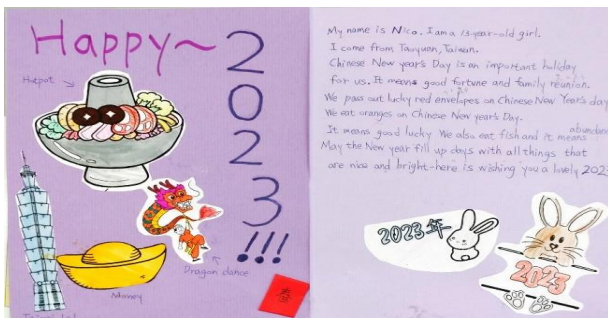 Happy~
2023!!!
Hotpot
Dragon dance
Money
My name is Nico. I am a 13-year-old girl.
I come from Taoyuan, Taiwan.
Chinese New year's Day is an important holiday
for us. It means good fortune and family reunion.
We pass out lucky red envelopes on Chinese New Year's day
We eat oranges on Chinese New year's Day.
It means good lucky We also eat fish and it means abundance
May the New year fill up days with all things that
are nice and bright-here is wishing you a lovely 2023
2023年
2023